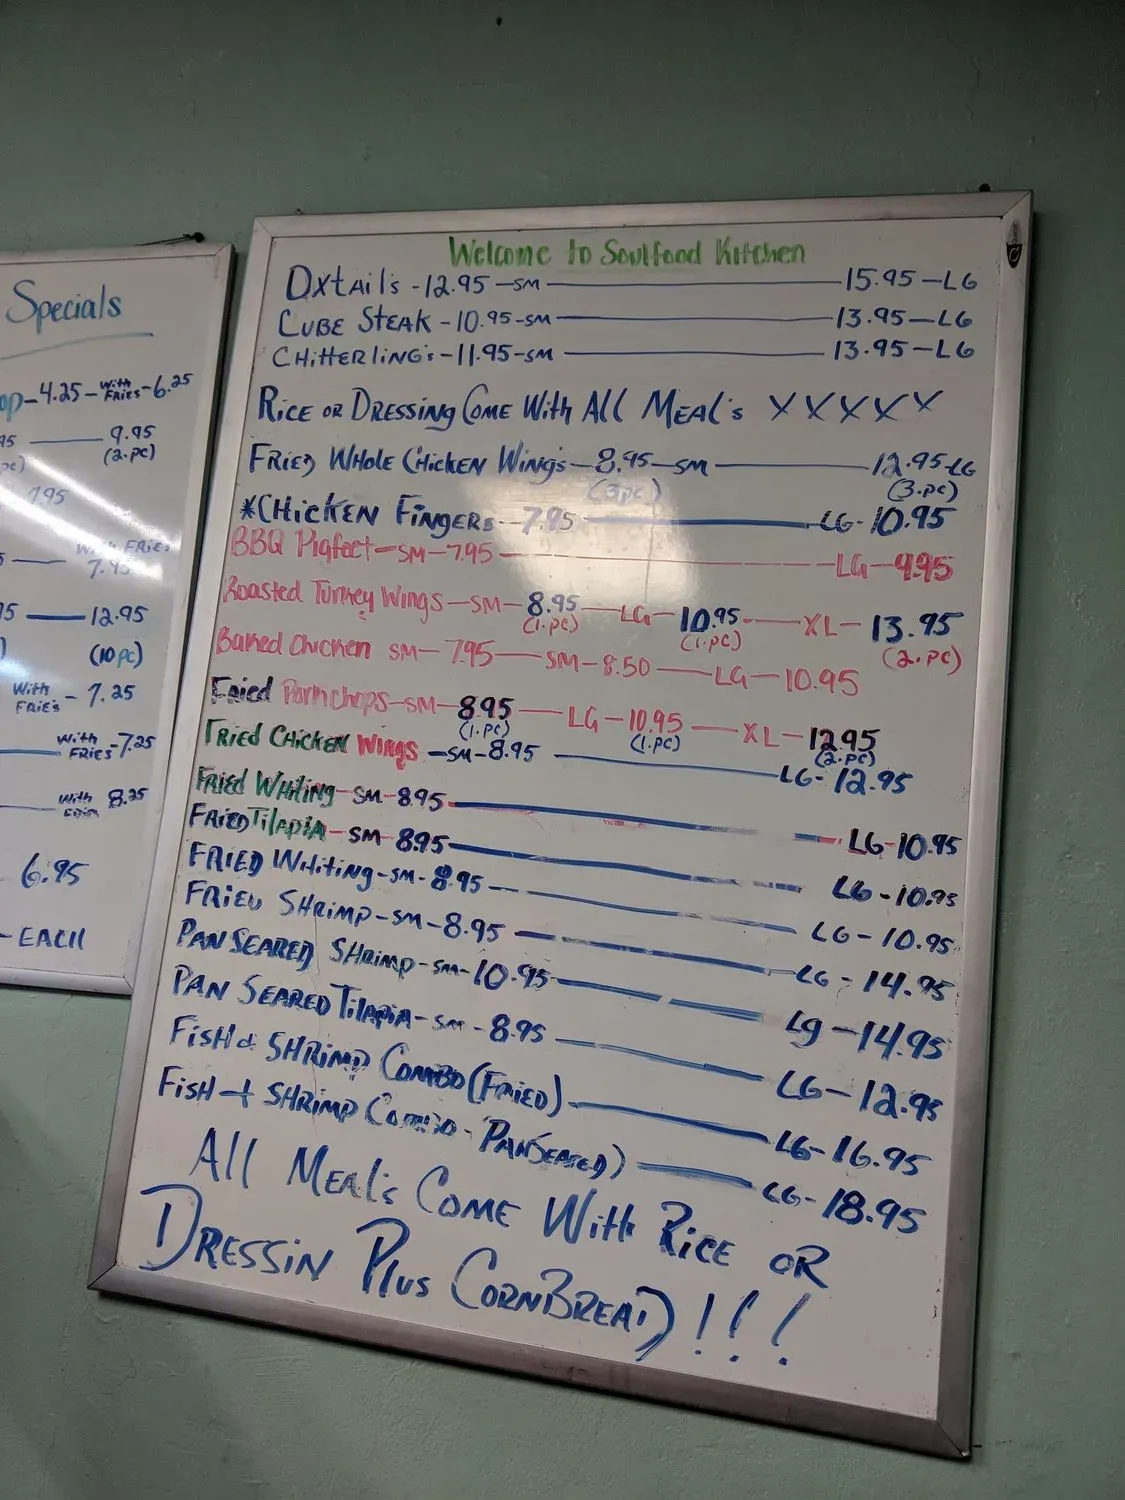 Specials
op-4.25-With Fries-6.25
95 — 9.95
(2.pc)
7.95
With Fries
7.95
95 — 12.95
(10pc)
With Fries - 7.25
With Fries-7.25
With 8.25
6.95
- EACH
Welcome to Soulfood Kitchen
Oxtails - 12.95 - SM — 15.95 - LG
Cube Steak - 10.95 - SM — 13.95 - LG
Chitterling's - 11.95 - SM — 13.95 - LG
Rice or Dressing Come With All Meal's XXXXX
Fried Whole Chicken Wing's - 8.95 - SM — 12.95-LG
(3pc) (3.pc)
*Chicken Fingers - 7.95 — LG - 10.95
BBQ Pigfeet - SM - 7.95 — LG - 9.95
Roasted Turkey Wings - SM - 8.95 — LG - 10.95 — XL - 13.95
(1.pc) (1.pc) (2.pc)
Baked Chicken SM - 7.95 — SM - 8.50 — LG - 10.95
Fried Porkchops - SM - 8.95 — LG - 10.95 — XL - 12.95
(1.pc) (1.pc) (2.pc)
Fried Chicken Wings - SM - 8.95 — LG - 12.95
Fried Whiting - SM - 8.95 — LG - 10.95
Fried Tilapia - SM 8.95 — LG - 10.95
Fried Whiting - SM - 8.95 — LG - 10.95
Fried Shrimp - SM - 8.95 — LG - 14.95
Pan Seared Shrimp - SM - 10.95 — Lg - 14.95
Pan Seared Tilapia - SM - 8.95 — LG - 12.95
Fish & Shrimp Combo (Fried) — LG - 16.95
Fish + Shrimp Combo - Pan Seared) — LG - 18.95
All Meal's Come With Rice or
Dressin Plus CornBread)!!!